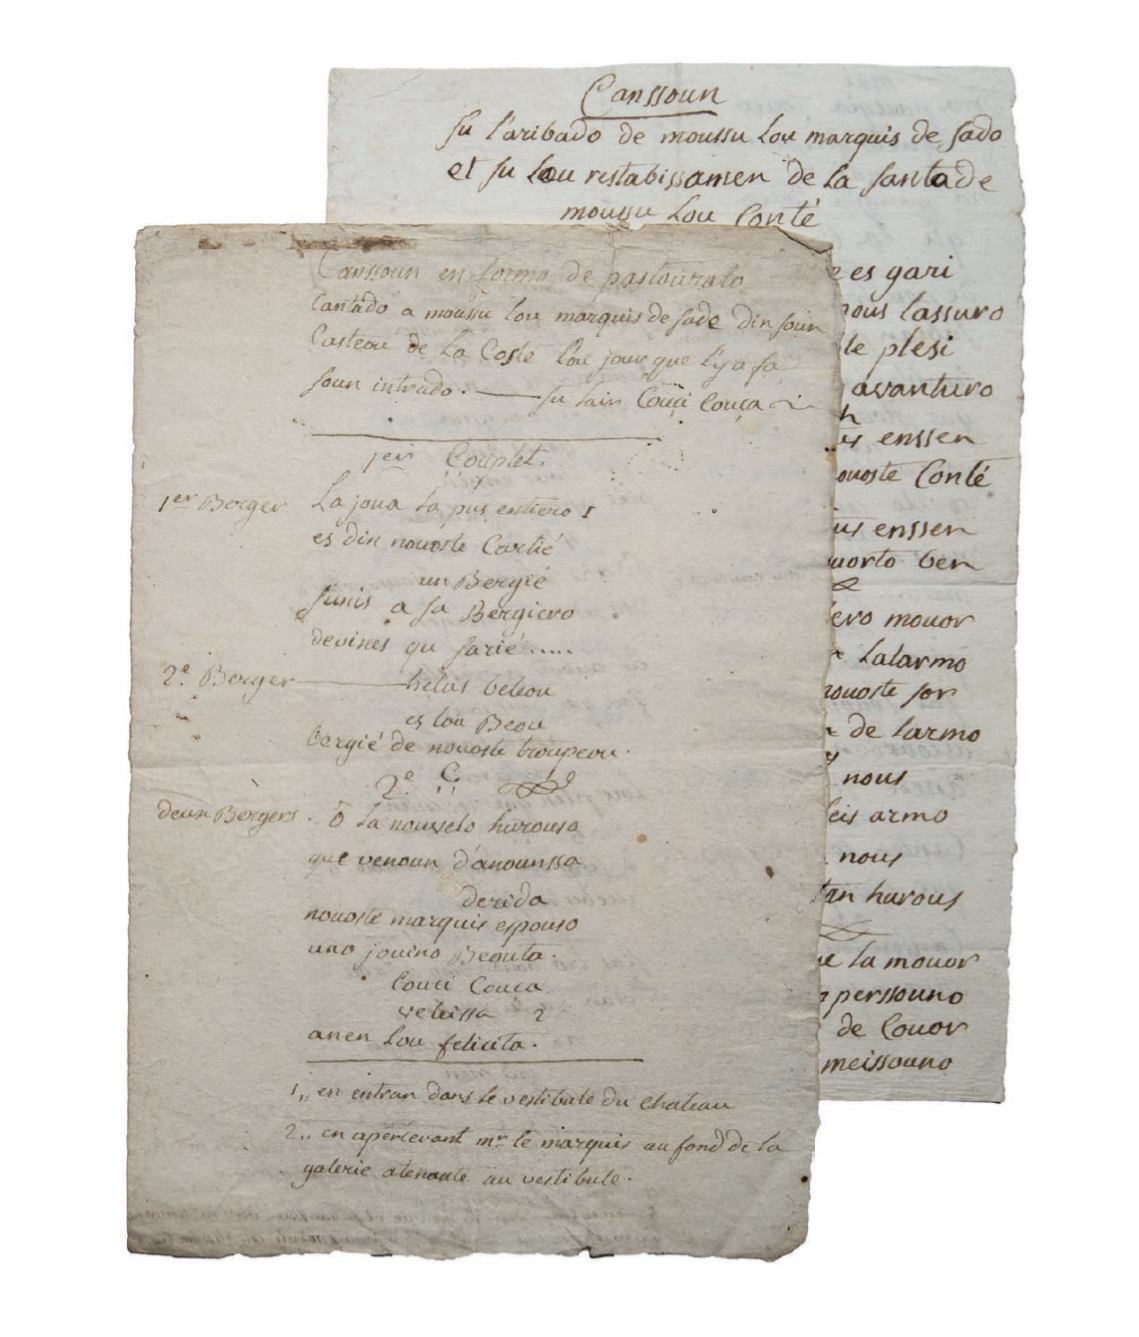 Canssoun
su l'aribado de moussu lou marquis de sado
et su lou restabissamen de la santa de
moussu lou Conté
es gari
nous lassuro
le plesi
avanturo
enssen
nouoste Conté
enssen
ben
mouor
lalarmo
nouoste sor
de larmo
nous
leis armo
nous
tan hurous
la mouor
perssouno
de Couor
meissouno
Canssoun en formo de pastouralo
Cantado a moussu lou marquis de sade din soun
Casteou de La Coste lou jour que l'y a fa
soun intrado. — su lair Couci Couça
1er Couplet.
1er Berger La joua la pus entiero 1
es din nouoste Cartié
un Bergié
sunis a sa Bergiero
devines qu sarié .....
2e. Berger — helas beleou
es lou Beou
bergié de nouoste troupeou.
2e C.
deux Bergers. O la nouvelo hurouso
que venoun d'anounssa
derida
nouoste marquis espouso
uno jouino Beouta.
Couci Couca
veleissa 2
anen lou felicita.
1,, en entran dans le vestibule du chateau
2,, en apercevant mr. le marquis au fond de la
galerie atenante au vestibule.